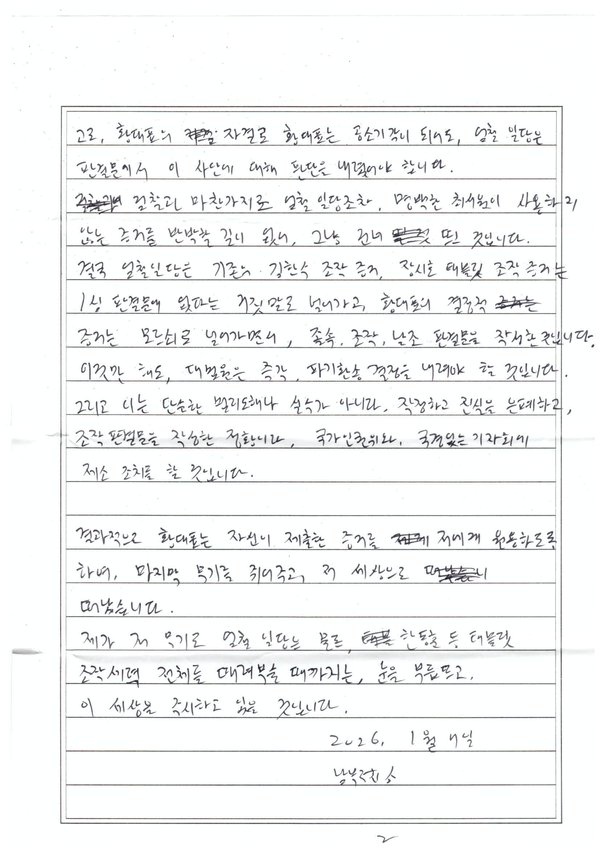 고로, 황대표의 자결로 황대표는 공소기각이 되어도, 엄철 일당은
판결문에서 이 사안에 대해 판단을 내렸어야 합니다.
검찰과 마찬가지로 엄철 일당조차, 명백한 최서원이 사용하지
않는 증거를 반박할 길이 없어, 그냥 건너 뛴 것입니다.
결국 엄철일당은 기존의 김한수 조작 증거, 장시호 태블릿 조작 증거는
1심 판결문에 있다는 거짓말로 넘어가고, 황대표의 결정적
증거는 모르쇠로 넘어가면서, 졸속, 조작, 날조 판결문을 작성한 것입니다.
이것만 해도, 대법원은 즉각, 파기환송 결정을 내려야 할 것입니다.
그리고 이는 단순한 법리오해나 실수가 아니다. 작정하고 진실을 은폐하고,
조작 판결문을 작성한 정황이라, 국가인권위와, 국경없는 기자회에
제소 조치를 할 것입니다.
결과적으로 황대표는 자신이 제출한 증거를 저에게 원용하도록
하며, 마지막 무기를 쥐어주고, 저 세상으로
떠났습니다.
제가 저 무기로 엄철 일당은 물론, 한동훈 등 태블릿
조작세력 전체를 때려부술 때까지는, 눈을 부릅뜨고,
이 세상을 주시하고 있을 것입니다.
2026, 1월
남부구치소
2